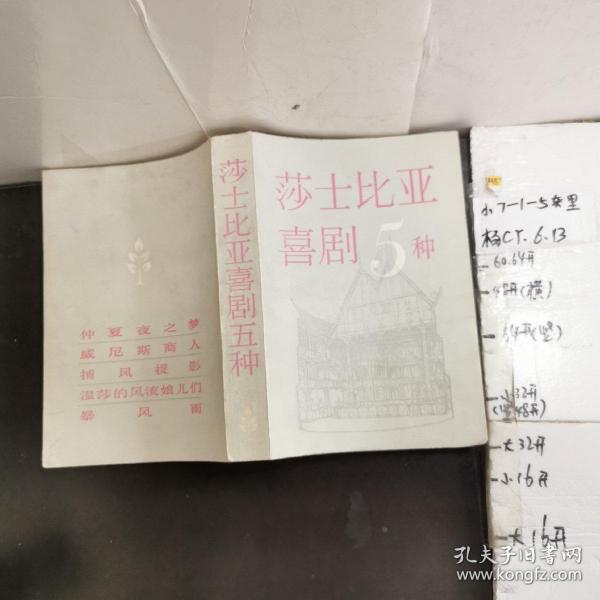 莎士比亚
喜剧5种
莎士比亚喜剧五种
仲夏夜之梦
威尼斯商人
捕风捉影
温莎的风流娘儿们
暴风雨
小7-1-5
杨CT.6.13
-60.64开
-48开(横)
-小32开
(竖48开)
-大32开
-小16开
-大16开
孔夫子旧书网
www.kongfz.com